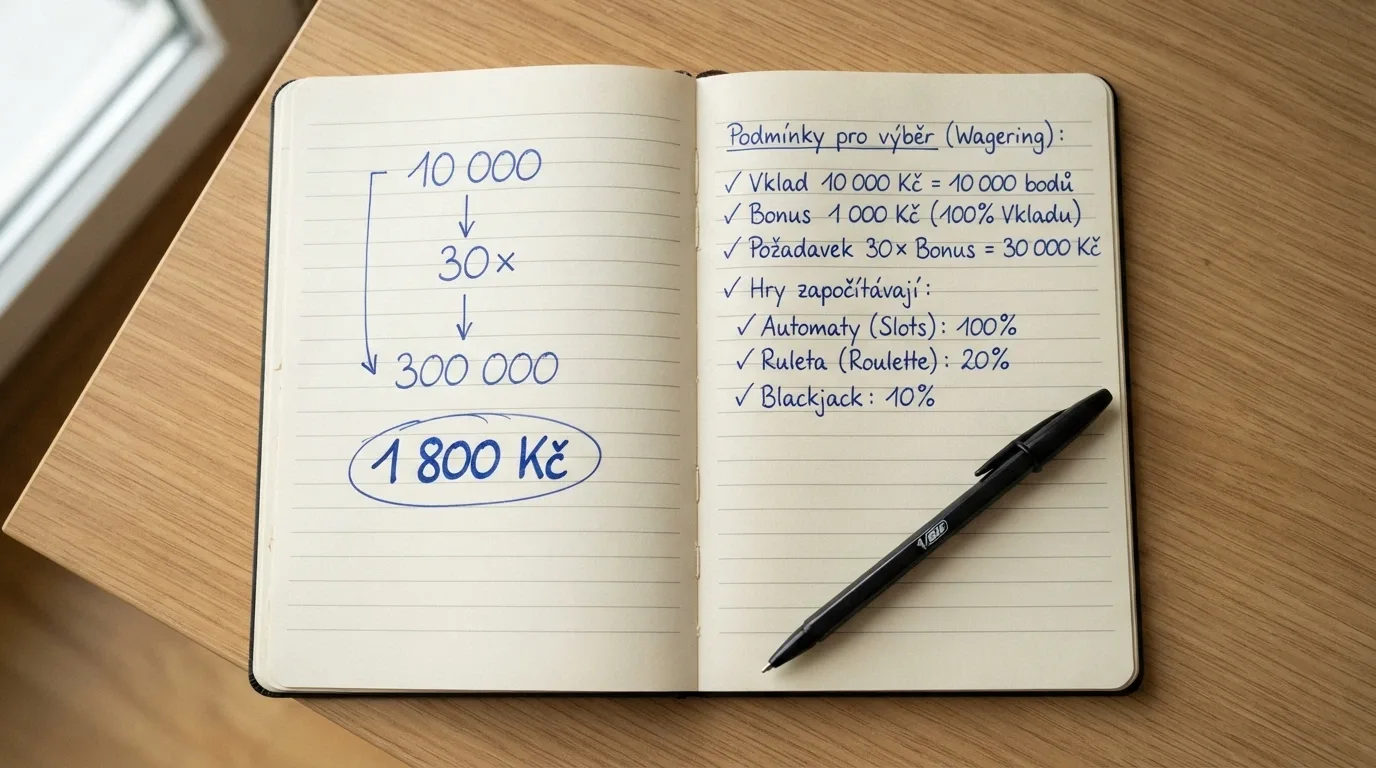 10 000
30×
300 000
1 800 Kč
Podmínky pro výběr (Wagering):
✓ Vklad 10 000 Kč = 10 000 bodů
✓ Bonus 1 000 Kč (100% Vkladu)
✓ Požadavek 30× Bonus = 30 000 Kč
✓ Hry započítávají:
✓ Automaty (Slots): 100%
✓ Ruleta (Roulette): 20%
✓ Blackjack: 10%